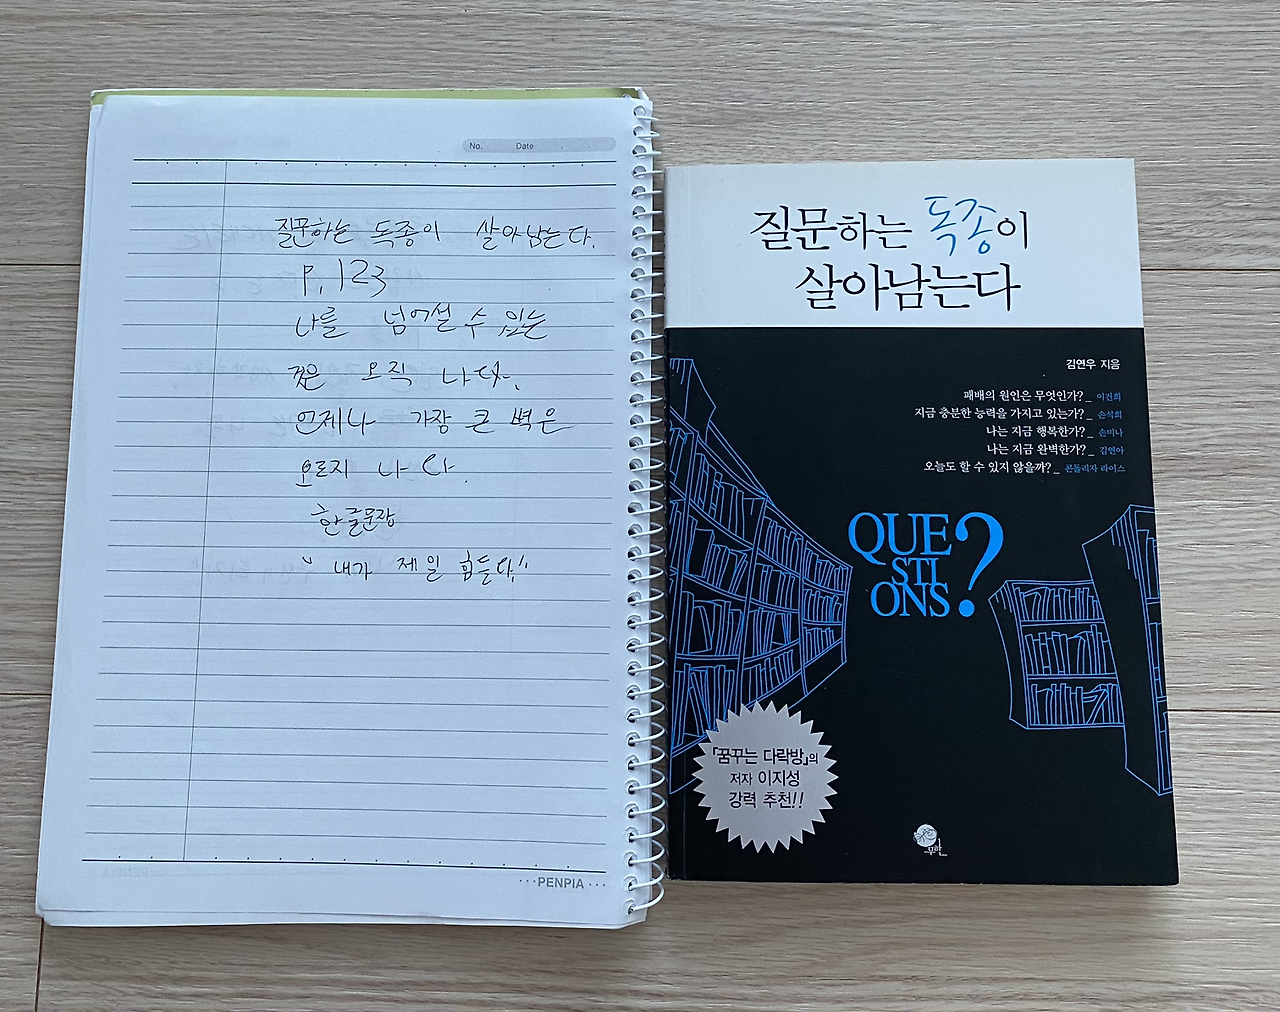 No. Date
질문하는 독종이 살아남는다.
P. 123
나를 넘어설 수 있는
것은 오직 나다.
언제나 가장 큰 벽은
오로지 나다.
한글문장
" 내가 제일 힘들다."
···PENPIA···
질문하는 독종이
살아남는다
김연우 지음
패배의 원인은 무엇인가?_ 이건희
지금 충분한 능력을 가지고 있는가?_ 손석희
나는 지금 행복한가?_ 손미나
나는 지금 완벽한가?_ 김연아
오늘도 할 수 있지 않을까?_ 콘돌리자 라이스
QUE
STI
ONS?
『꿈꾸는 다락방』의
저자 이지성
강력 추천!!
무한